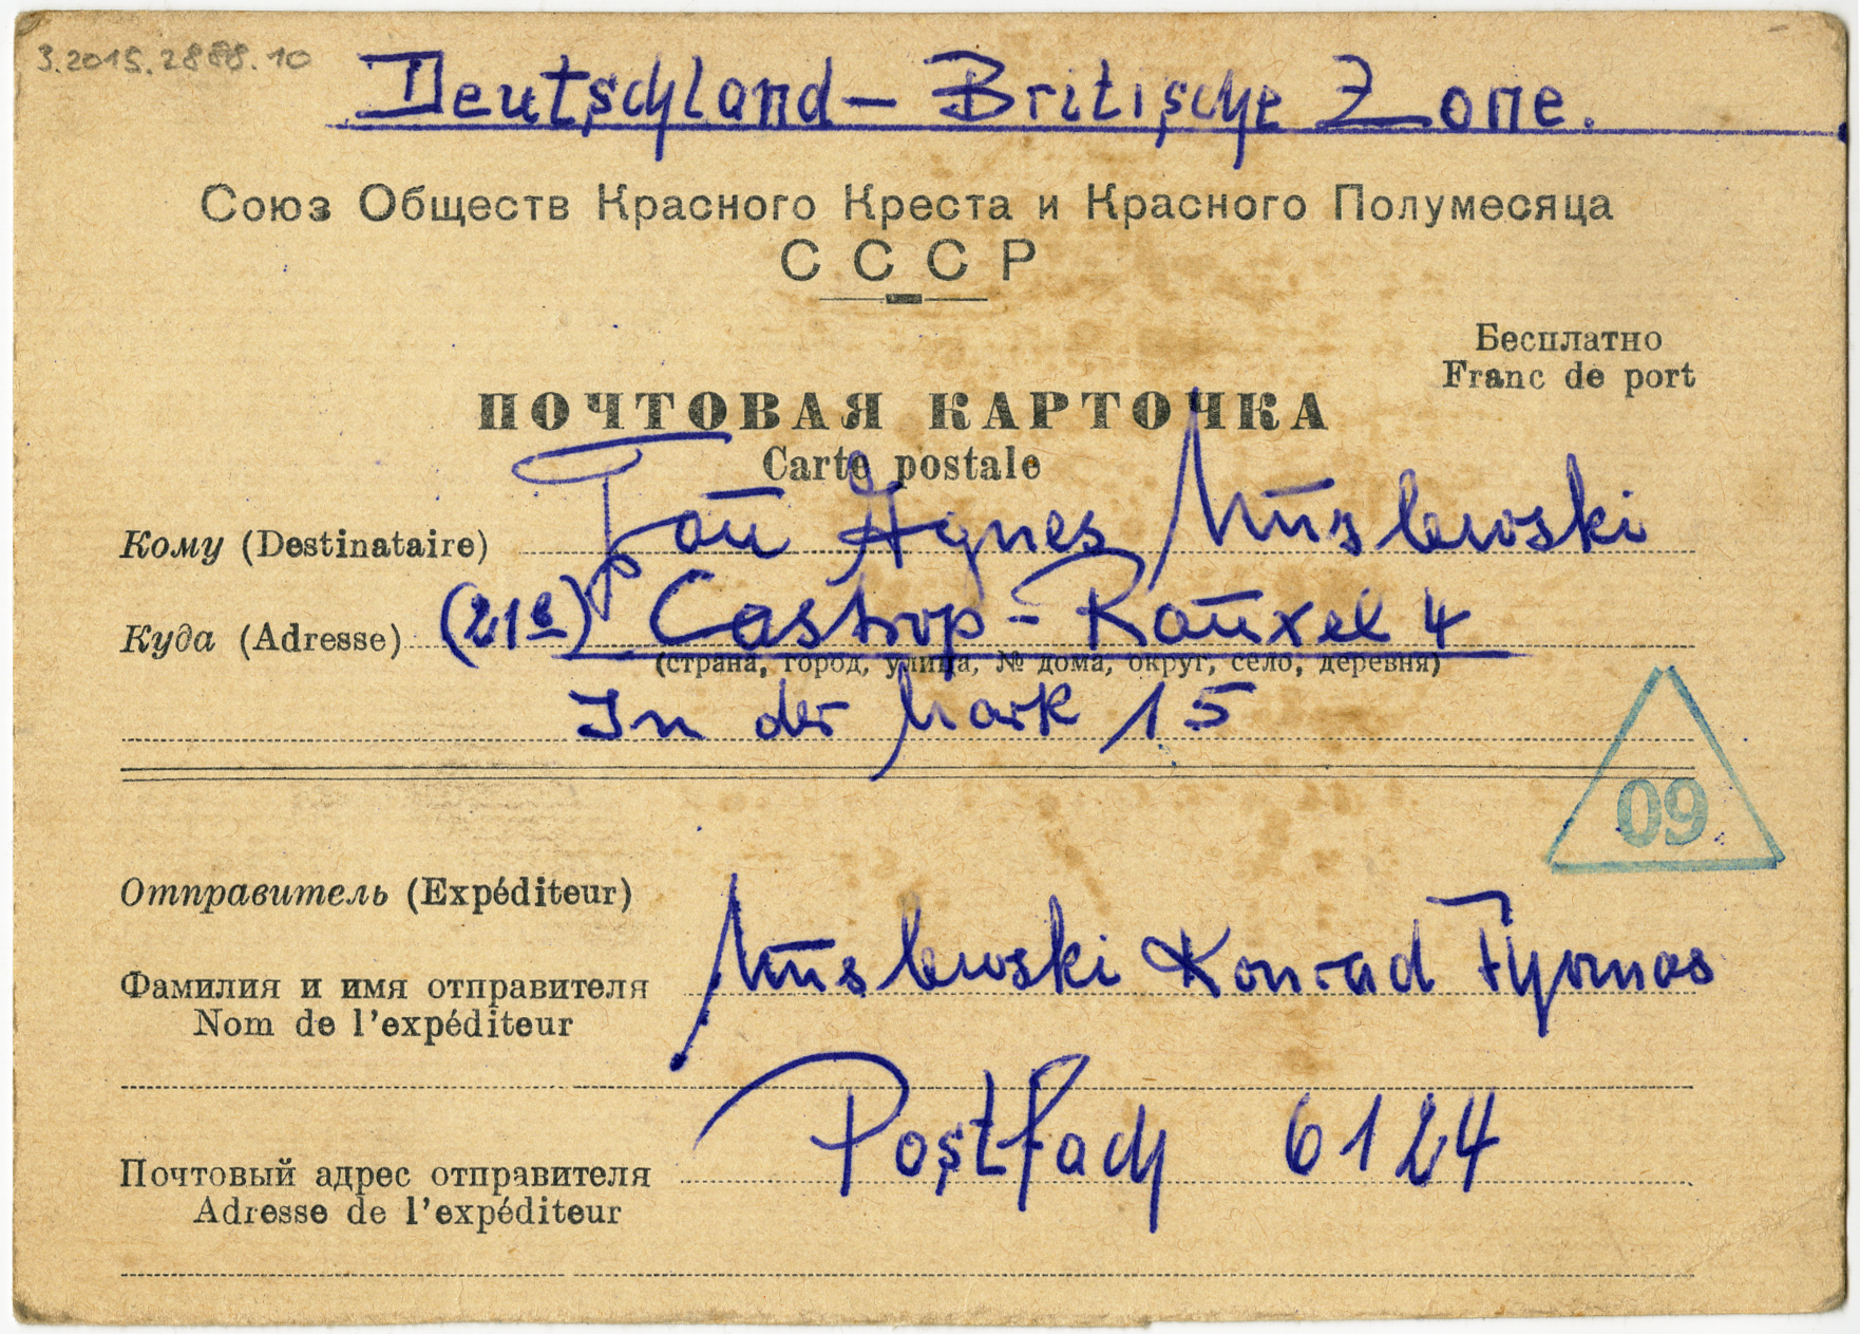 3.2015.2888.10
Deutschland – Britische Zone.
Союз Обществ Красного Креста и Красного Полумесяца
СССР
Бесплатно
Franc de port
ПОЧТОВАЯ КАРТОЧКА
Carte postale
Кому (Destinataire) Frau Agnes
Куда (Adresse) (21a) Castrop-Rauxel 4
(страна, город, улица, № дома, округ, село, деревня)
In der Mark 15
09
Отправитель (Expéditeur)
Фамилия и имя отправителя Konrad Thomas
Nom de l'expéditeur
Postfach 6124
Почтовый адрес отправителя
Adresse de l'expéditeur